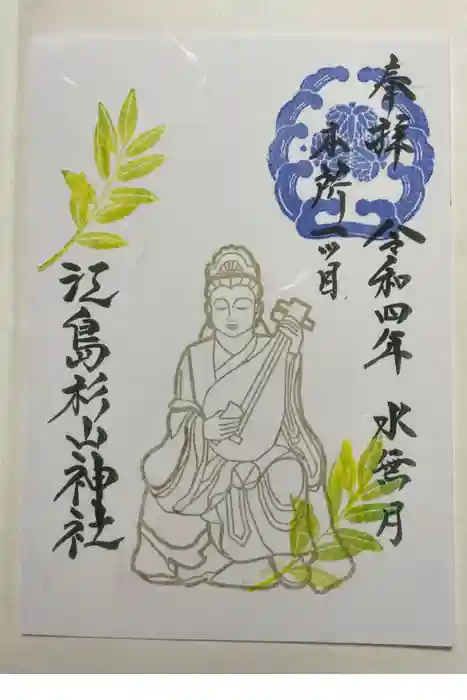 奉拝
本所一ツ目
令和四年 水無月
江島杉山神社